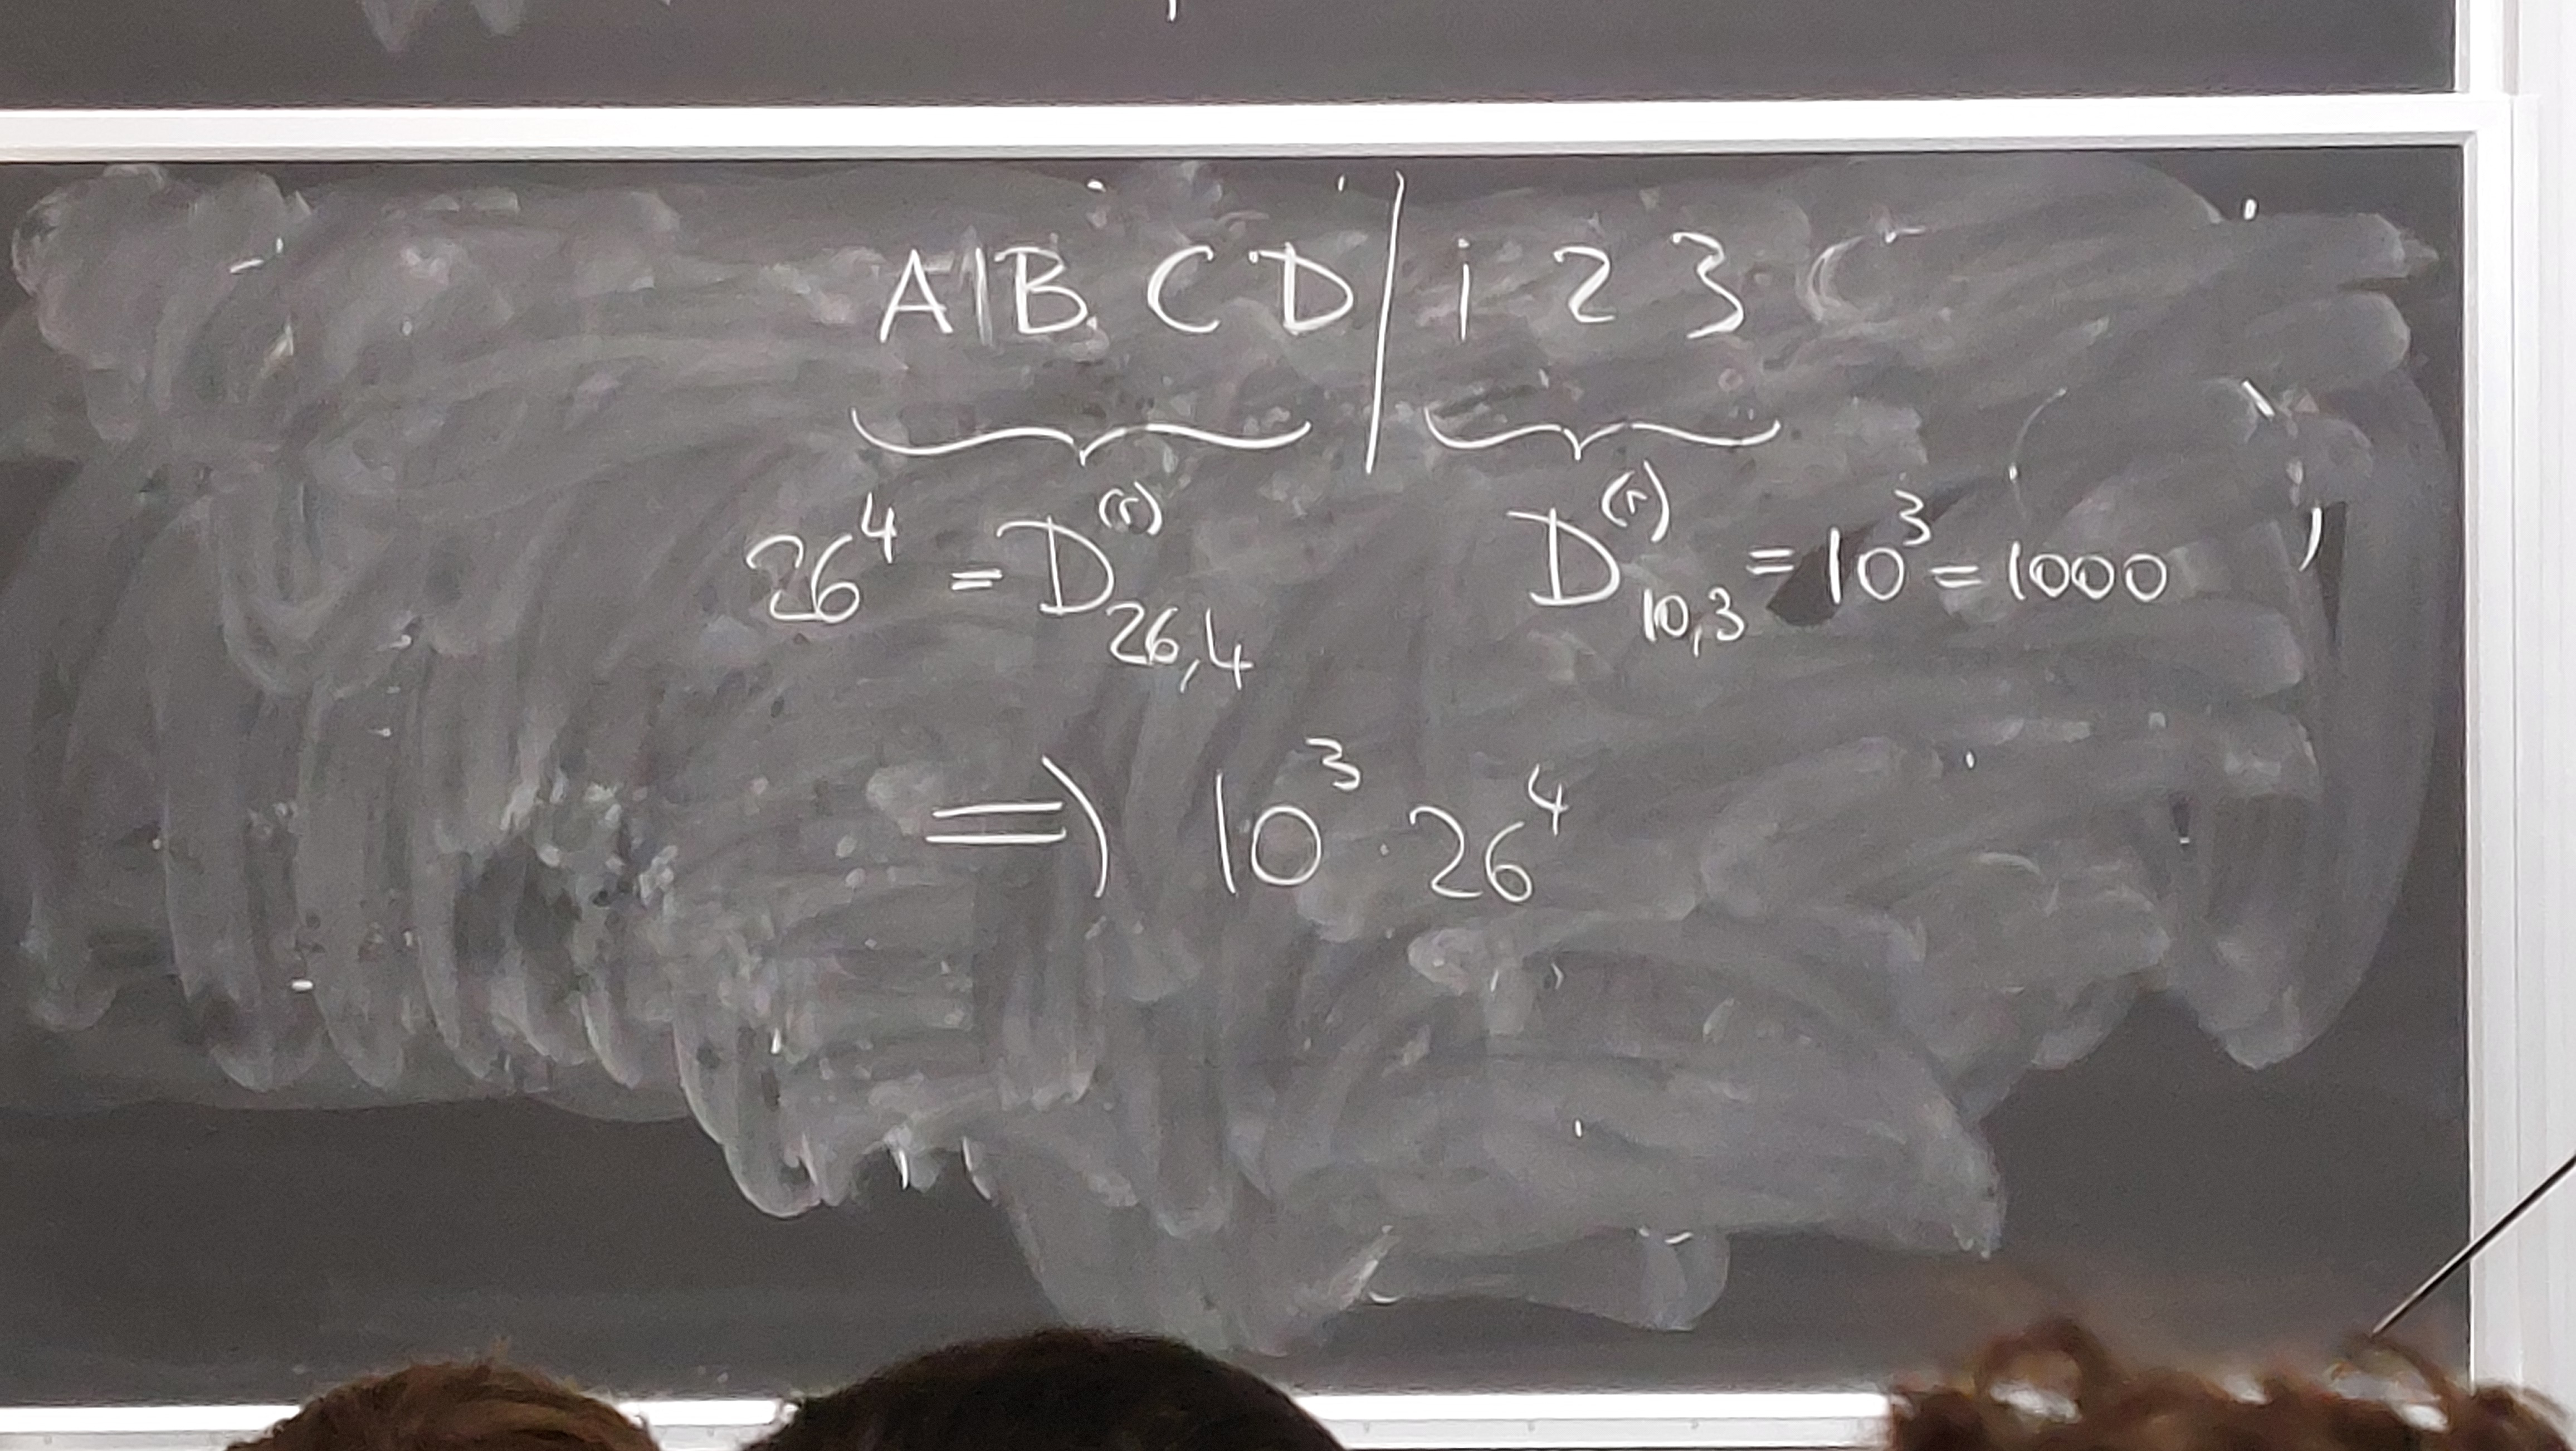 A B C D | 1 2 3
26⁴ = D⁽ʳ⁾₂₆,₄ D⁽ʳ⁾₁₀,₃ = 10³ = 1000
⇒ 10³ · 26⁴